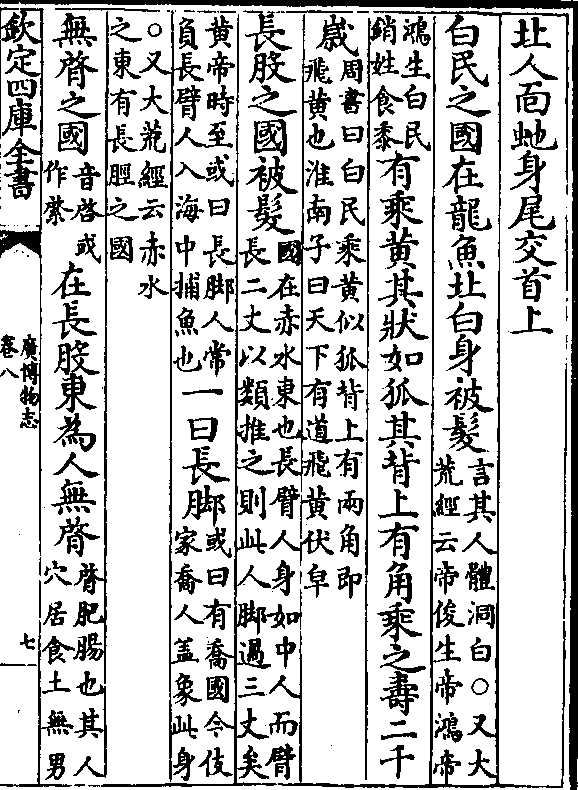 北人面虵身尾交首上
白民之國在龍魚北白身被髮
言其人體洞白○又大
荒經云帝俊生帝鴻帝
鴻生白民
銷姓食黍
有乘黃其狀如狐其背上有角乘之壽二千
歲
周書曰白民乘黃似狐背上有兩角即
飛黃也淮南子曰天下有道飛黃伏皁
長股之國被髮
國在赤水東也長臂人身如中人而臂
長二丈以類推之則此人脚過三丈矣
黃帝時至或曰長脚人常
負長臂人入海中捕魚也
一曰長脚
或曰有喬國今伎
家喬人蓋象此身
○又大荒經云赤水
之東有長脛之國
無䏿之國
音啓或
作綮
在長股東為人無䏿
䏿肥腸也其人
穴居食土無男
欽定四庫全書
廣博物志
卷八
七